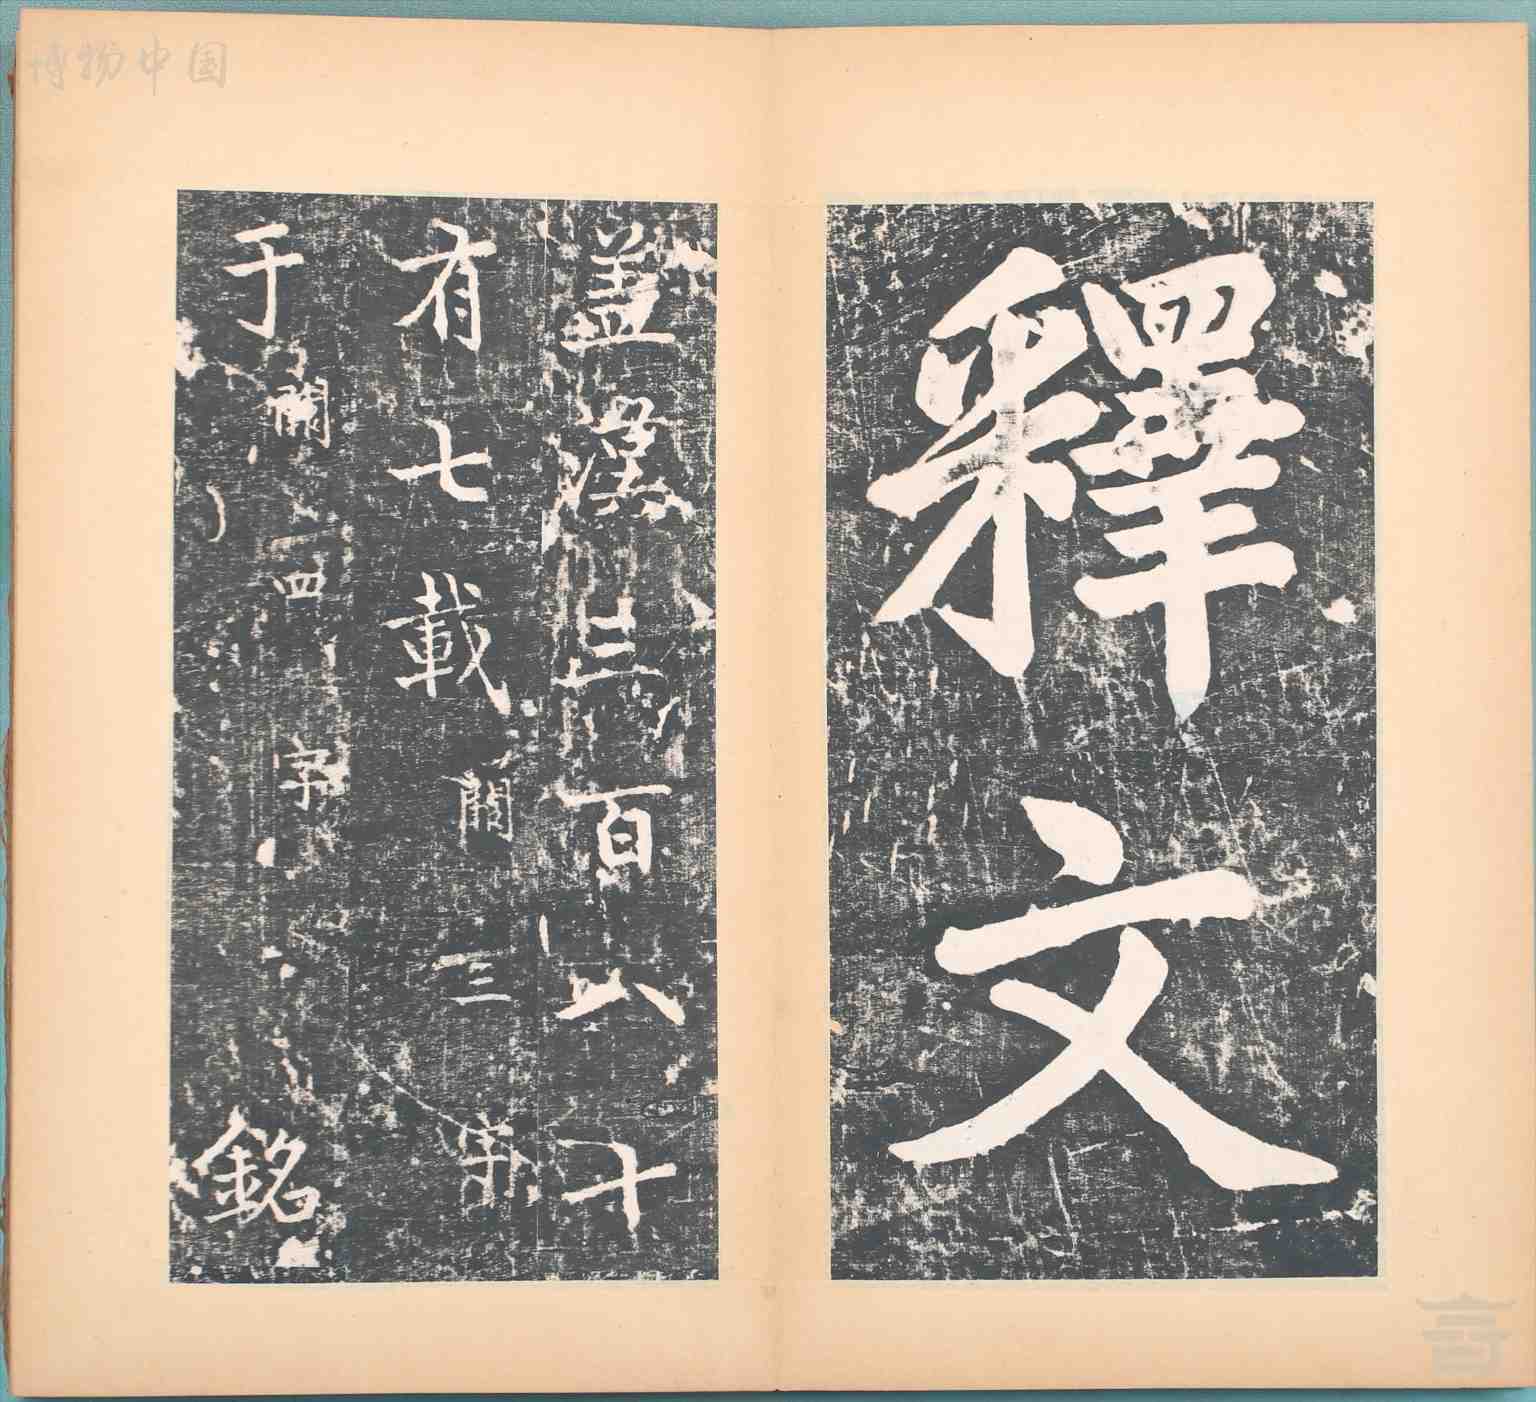 釋文
盖漢三百八十
有七載闕三字
于闕四字銘
博物中国